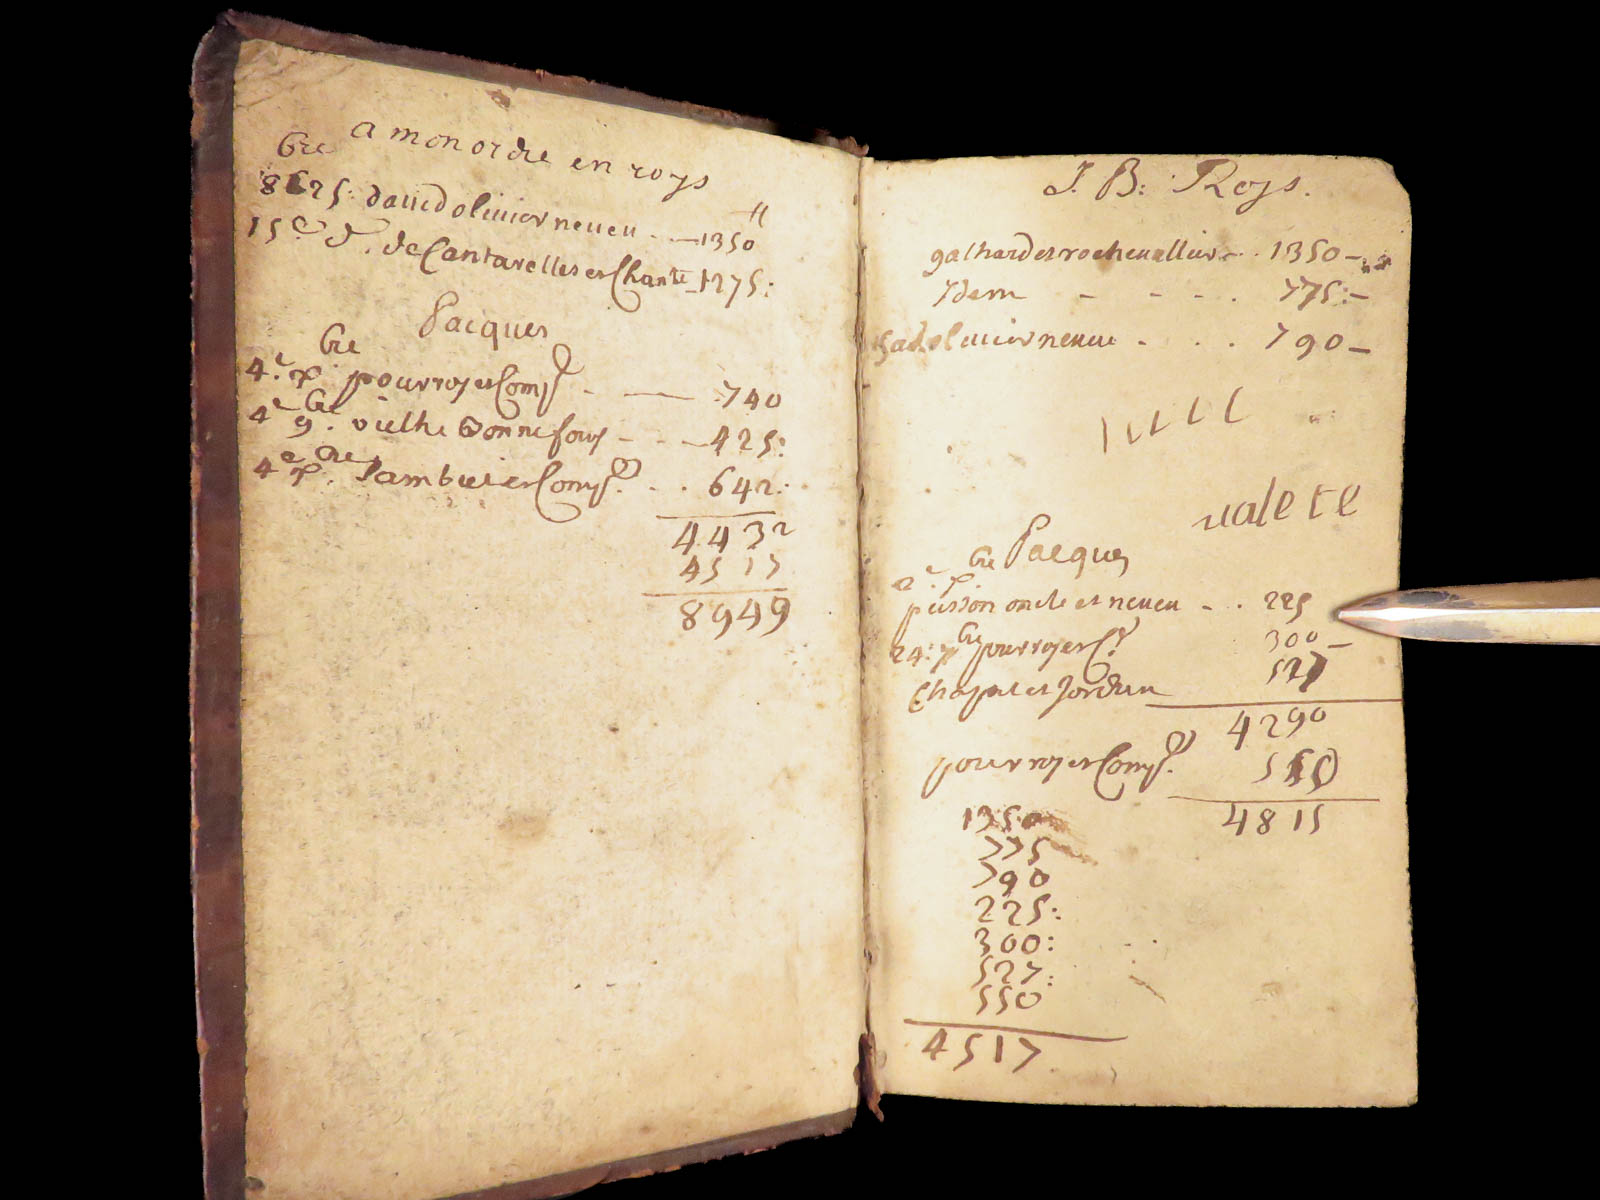 a mon ordre en roys
bre
8 25: david olivier neveu - - 1350 ₶
15e d. de Cantarelles et Chante 1275:
Pacques
bre
4e X. pourroy et Comp - — 740
4e 9bre. vielhe Bonnefous - - - 425:
4e Xbre. et Comp. - . 642:
4432
4517
8949
J. B: Roys.
galhard et rochevallier . . 1350 –
Idem - - - . 775: –
olivier neveu - . . . 790 –
valete
bre Pacques
2e X.
pisson oncle et neveu - . . 225
24: Xbre pourroy et C 300 –
et Jordan 527
4290
pourroy et Comp. 550
4815
1350
775
790
225:
300:
527:
550
4517